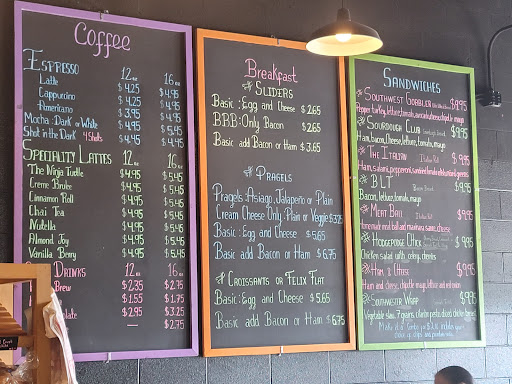 Coffee
Espresso 12 oz 16 oz
Latte $4.25 $4.95
Cappuccino $4.25 $4.95
Americano $3.95 $4.45
Mocha: Dark or White $4.95 $5.45
Shot in the Dark 4 Shots $4.45
Specialty Lattes 12 oz 16 oz
The Ninja Turtle $4.95 $5.45
Creme Brulee $4.95 $5.45
Cinnamon Roll $4.95 $5.45
Chai Tea $4.95 $5.45
Nutella $4.95 $5.45
Almond Joy $4.95 $5.45
Vanilla Berry $4.95 $5.45
Drinks 12 oz 16 oz
Brew $2.35 $2.75
$1.55 $1.75
$2.95 $3.25
$2.75
Breakfast
Sliders
Basic: Egg and Cheese $2.65
BBB: Only Bacon $2.65
Basic add Bacon or Ham $3.65
Pragels
Pragels: Asiago, Jalapeño or Plain
Cream Cheese Only Plain or Veggie $3.25
Basic: Egg and Cheese $5.65
Basic add Bacon or Ham $6.75
Croissants or Felix Flat
Basic: Egg and Cheese $5.65
Basic add Bacon or Ham $6.75
Sandwiches
Southwest Gobbler $9.95
Pepper turkey, lettuce, tomato, avocado, cheese, chipotle mayo
Sourdough Club $9.95
Ham, bacon, cheese, lettuce, tomato, mayo
The Italian Italian Roll $9.95
Ham, salami, pepperoni,
BLT $9.95
Bacon, lettuce, tomato, mayo
Meat Ball Italian Roll $9.95
Homemade meat ball and marinara sauce, cheese
Hodgepodge Chick $9.95
Chicken salad with celery,
Ham & Cheese $9.95
Ham and cheese, chipotle mayo, lettuce and onion
Southwester Wrap $9.95